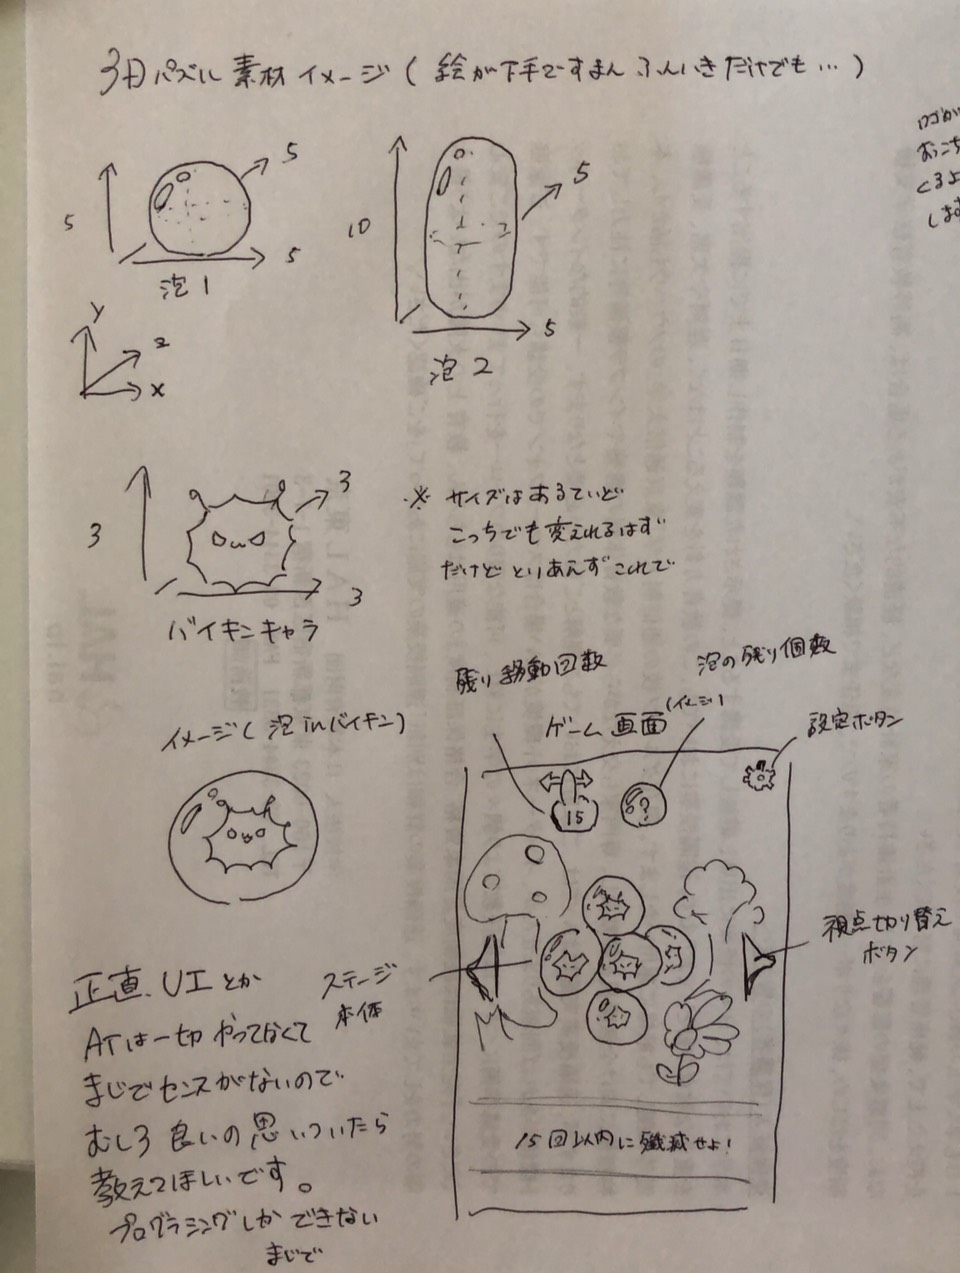 3Dパズル 素材 イメージ ( 絵が下手ですまん ふんいきだけでも… )
5
5
5
泡 1
10
5
5
泡 2
Y
z
x
3
3
3
バイキンキャラ
※ サイズはあるていど
こっちでも変えれるはず
だけど とりあえず これで
イメージ ( 泡 in バイキン )
残り移動回数
泡の残り個数
ゲーム画面 (イメージ)
設定ボタン
15
?
視点切り替え
ボタン
ステージ
本体
15回以内に殲滅せよ!
正直、UIとか
ATは一切やってなくて
まじでセンスがないので
むしろ 良いの 思いついたら
教えてほしいです。
プログラミングしか できない
まじで